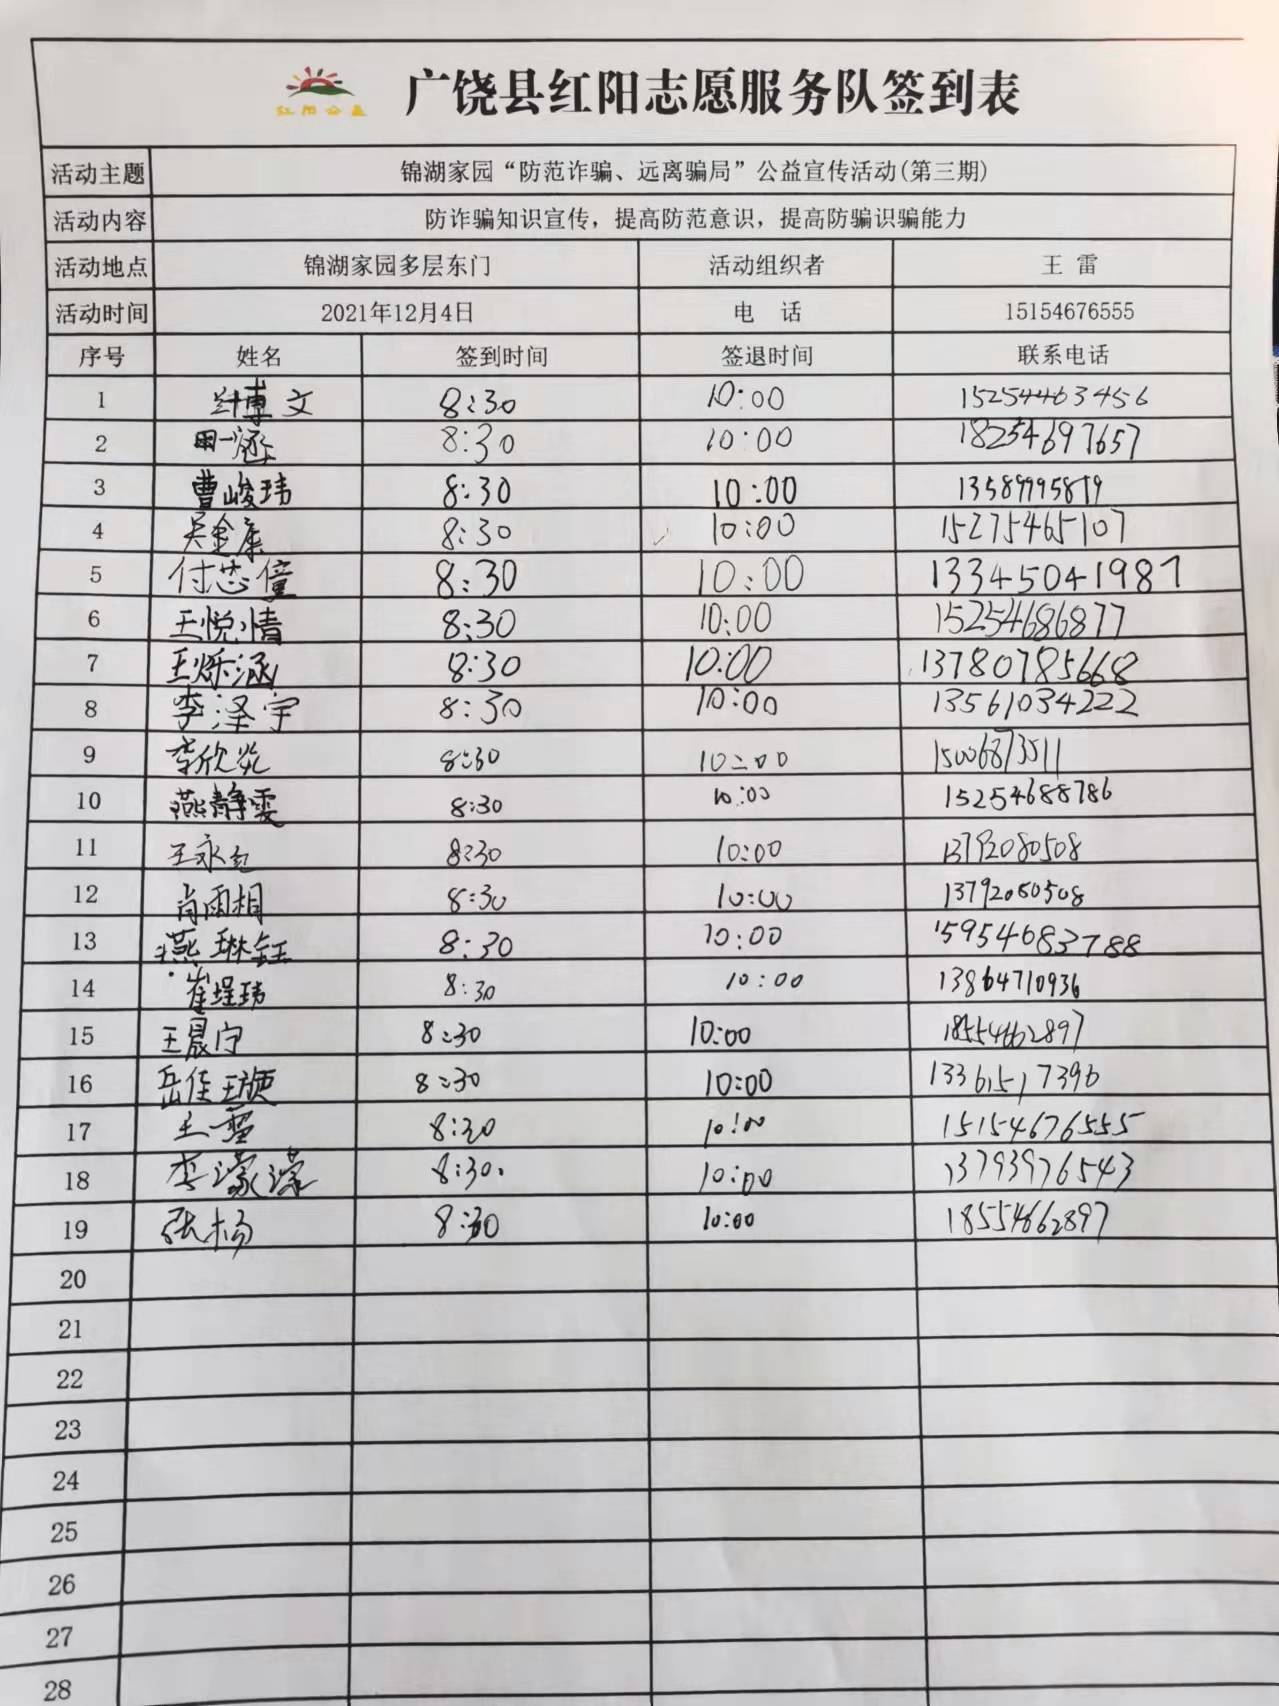 红阳公益
广饶县红阳志愿服务队签到表
活动主题 锦湖家园“防范诈骗、远离骗局”公益宣传活动(第三期)
活动内容 防诈骗知识宣传，提高防范意识，提高防骗识骗能力
活动地点 锦湖家园多层东门 活动组织者 王 雷
活动时间 2021年12月4日 电 话 15154676555
序号 姓名 签到时间 签退时间 联系电话
1 博文 8:30 10:00 15254463456
2 8:30 10:00 18254697657
3 曹峻玮 8:30 10:00 13589995819
4 吴金康 8:30 10:00 15275465107
5 付芯僮 8:30 10:00 13345041987
6 王悦情 8:30 10:00 15254686877
7 王烁涵 8:30 10:00 13780785668
8 李泽宇 8:30 10:00 13561034222
9 李欣 8:30 10:00 15006873511
10 燕静雯 8:30 10:00 15254688786
11 王永 8:30 10:00 13792080508
12 肖雨相 8:30 10:00 13792080508
13 燕琳钰 8:30 10:00 15954683788
14 崔埕玮 8:30 10:00 13864710936
15 王晨宇 8:30 10:00 18554662897
16 岳佳 8:30 10:00 13361517396
17 王雷 8:30 10:00 15154676555
18 李濛濛 8:30 10:00 13793976543
19 张杨 8:30 10:00 18554662897
20
21
22
23
24
25
26
27
28